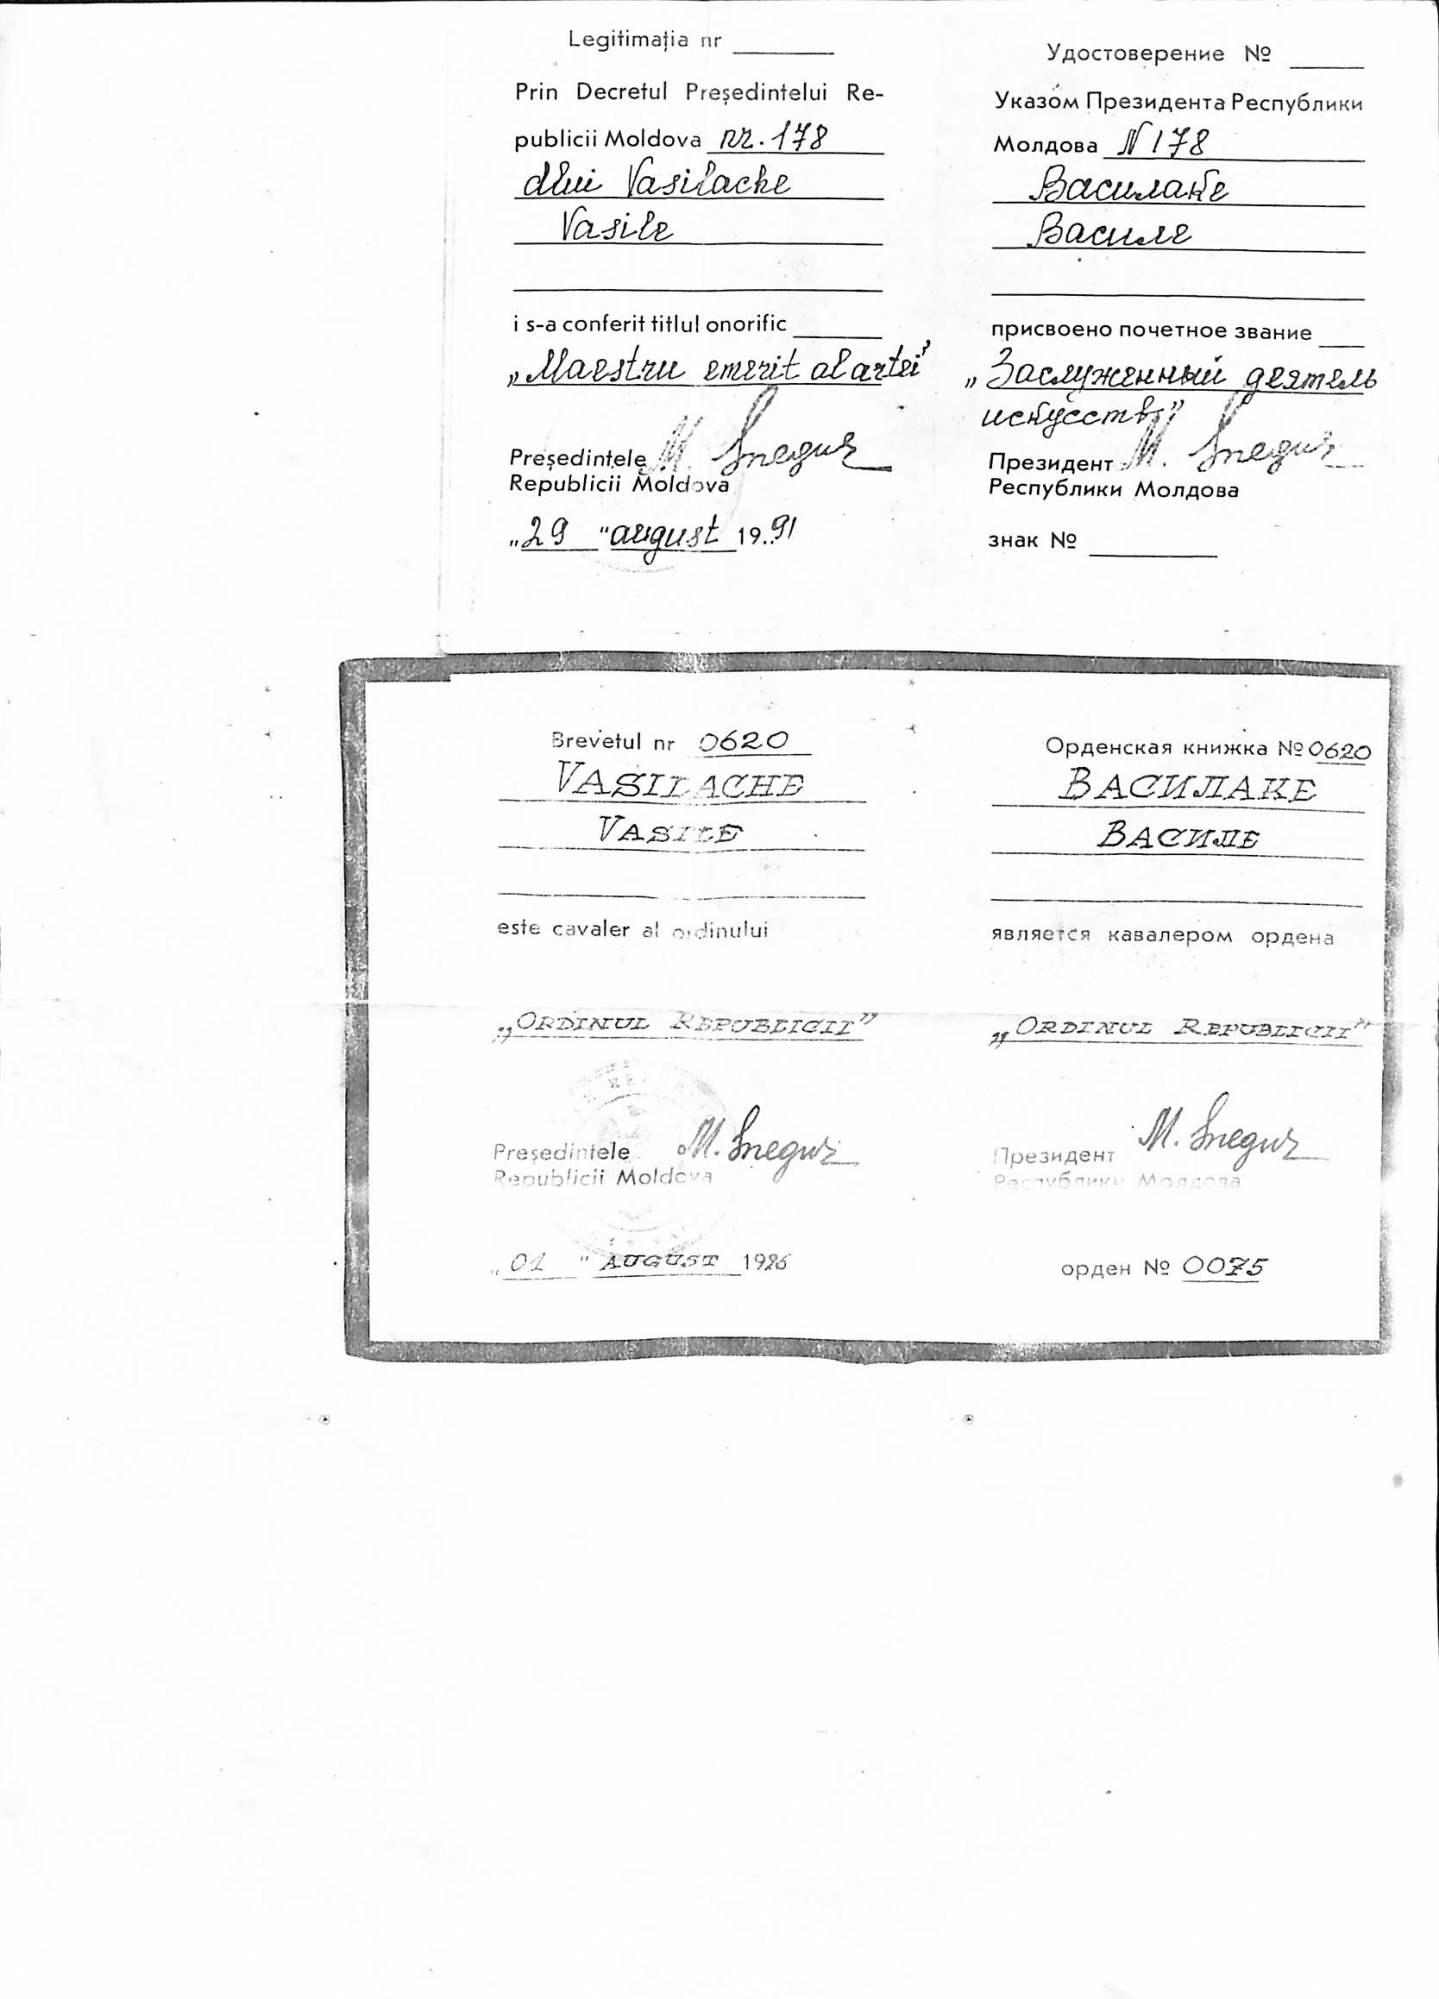 Legitimația nr
Prin Decretul Președintelui Re-
publicii Moldova nr. 178
dlui Vasilache
Vasile
i s-a conferit titlul onorific
„Maestru emerit al artei”
Președintele M. Snegur
Republicii Moldova
„29" august 1991
Удостоверение №
Указом Президента Республики
Молдова N 178
Василаке
Василе
присвоено почетное звание
„Заслуженный деятель
искусств”
Президент M. Snegur
Республики Молдова
знак №
Brevetul nr 0620
VASILACHE
VASILE
este cavaler al ordinului
„ORDINUL REPUBLICII”
Președintele M. Snegur
Republicii Moldova
„01" AUGUST 1996
Орденская книжка № 0620
ВАСИЛАКЕ
ВАСИЛЕ
является кавалером ордена
„ORDINUL REPUBLICII”
Президент M. Snegur
Республики Молдова
орден № 0075